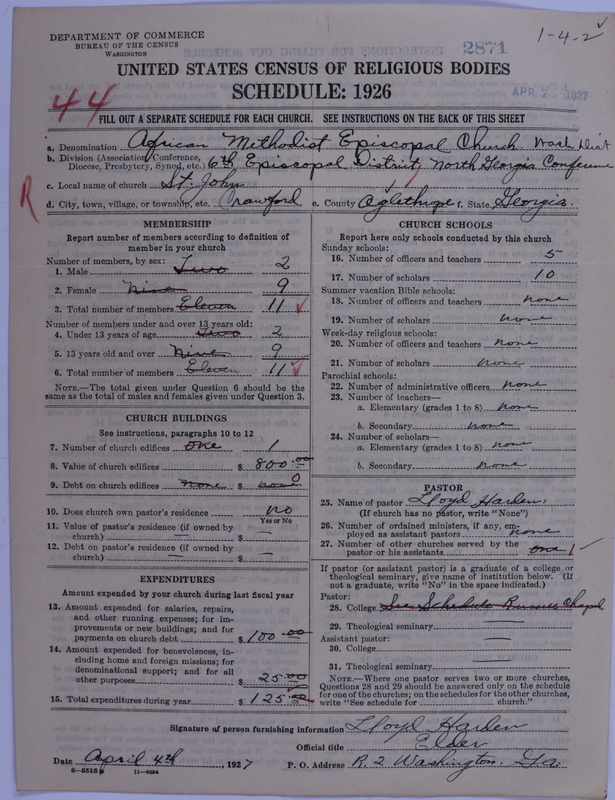 1-4-2 ✓
DEPARTMENT OF COMMERCE
BUREAU OF THE CENSUS
WASHINGTON
2871
UNITED STATES CENSUS OF RELIGIOUS BODIES
SCHEDULE: 1926
APR 7 1927
44
FILL OUT A SEPARATE SCHEDULE FOR EACH CHURCH. SEE INSTRUCTIONS ON THE BACK OF THIS SHEET
a. Denomination African Methodist Episcopal Church. Wash Dist
b. Division (Association, Conference, Diocese, Presbytery, Synod, etc.) 6th Episcopal District, North Georgia Conference
c. Local name of church St. John
R
d. City, town, village, or township, etc. Crawford e. County Oglethrope f. State Georgia.
MEMBERSHIP
Report number of members according to definition of
member in your church
Number of members, by sex:
1. Male Two 2
2. Female Nine 9
3. Total number of members Eleven 11 ✓
Number of members under and over 13 years old:
4. Under 13 years of age Two 2
5. 13 years old and over Nine 9
6. Total number of members Eleven 11 ✓
NOTE.—The total given under Question 6 should be the
same as the total of males and females given under Question 3.
CHURCH BUILDINGS
See instructions, paragraphs 10 to 12
7. Number of church edifices One 1
8. Value of church edifices $ 800.00
9. Debt on church edifices None $ none 0
10. Does church own pastor's residence No
Yes or No
11. Value of pastor's residence (if owned by
church) — $ —
12. Debt on pastor's residence (if owned by
church) — $ —
EXPENDITURES
Amount expended by your church during last fiscal year
13. Amount expended for salaries, repairs,
and other running expenses; for im-
provements or new buildings; and for
payments on church debt $ 100.00
14. Amount expended for benevolences, in-
cluding home and foreign missions; for
denominational support; and for all
other purposes $ 25.00
15. Total expenditures during year $ 125.00
CHURCH SCHOOLS
Report here only schools conducted by this church
Sunday schools:
16. Number of officers and teachers 5
17. Number of scholars 10
Summer vacation Bible schools:
18. Number of officers and teachers none
19. Number of scholars none
Week-day religious schools:
20. Number of officers and teachers none
21. Number of scholars none
Parochial schools:
22. Number of administrative officers none
23. Number of teachers—
a. Elementary (grades 1 to 8) none
b. Secondary none
24. Number of scholars—
a. Elementary (grades 1 to 8) none
b. Secondary none
PASTOR
25. Name of pastor Lloyd Harden.
(If church has no pastor, write "None")
26. Number of ordained ministers, if any, em-
ployed as assistant pastors none
27. Number of other churches served by the
pastor or his assistants one 1 ✓
If pastor (or assistant pastor) is a graduate of a college or
theological seminary, give name of institution below. (If
not a graduate, write "No" in the space indicated.)
Pastor:
28. College See Schedule Russell Chapel
29. Theological seminary —
Assistant pastor:
30. College —
31. Theological seminary —
NOTE.—Where one pastor serves two or more churches,
Questions 28 and 29 should be answered only on the schedule
for one of the churches; on the schedules for the other churches,
write "See schedule for church."
Signature of person furnishing information Lloyd Harden
Official title Elder
Date April 4th, 1927 P. O. Address R. 2 Washington, Ga.
8—5518a 11—9064